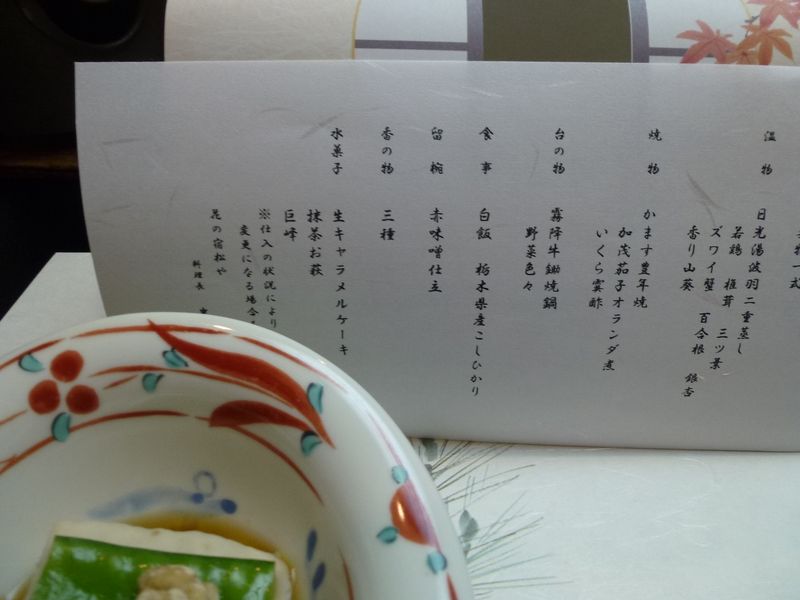 温物
日光湯波羽二重蒸し
若鶏 椎茸 三ツ葉
ズワイ蟹 百合根 銀杏
香り山葵
焼物
かます豊年焼
加茂茄子オランダ煮
いくら霙酢
台の物
霧降牛鋤焼鍋
野菜色々
食事
白飯 栃木県産こしひかり
留椀
赤味噌仕立
香の物
三種
水菓子
生キャラメルケーキ
抹茶お萩
巨峰
※仕入の状況により
変更になる場合
花の宿松や
料理長